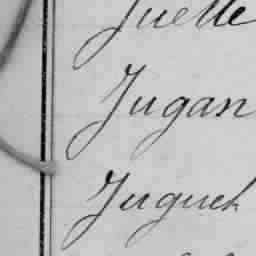 Juette
Jugan
Juguel